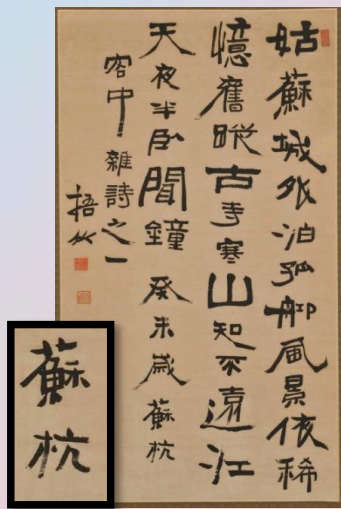 姑蘇城外泊孤風景依稀
憶舊蹤古寺寒山知不遠江
天夜半臥聞鐘 癸未歳蘇杭
客中雜詩之一
梧竹
蘇杭